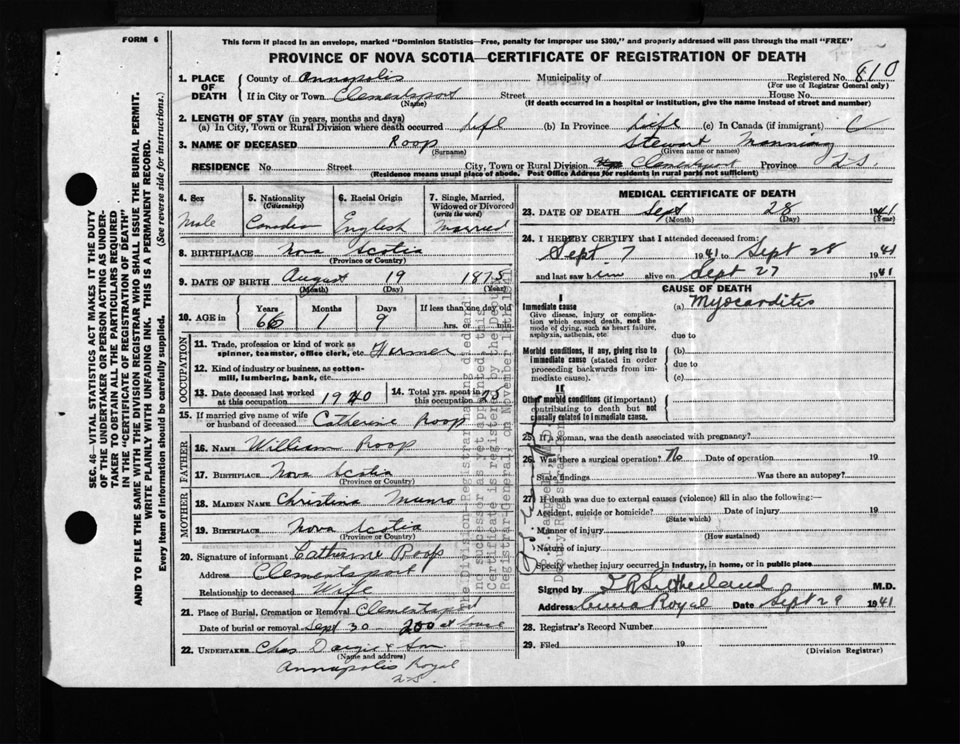 FORM 6
This form if placed in an envelope, marked "Dominion Statistics—Free, penalty for improper use $300," and properly addressed will pass through the mail "FREE"
PROVINCE OF NOVA SCOTIA—CERTIFICATE OF REGISTRATION OF DEATH
1. PLACE OF DEATH County of Annapolis Municipality of Registered No. 810
(For use of Registrar General only)
If in City or Town Clementsport Street House No.
(Name) (If death occurred in a hospital or institution, give the name instead of street and number)
2. LENGTH OF STAY (in years, months and days)
(a) In City, Town or Rural Division where death occurred life (b) In Province Life (c) In Canada (if immigrant) C
3. NAME OF DECEASED Roop Stewart Manning
(Surname) (Given name or names)
RESIDENCE No. Street City, Town or Rural Division Clementsport Province N.S.
(Residence means usual place of abode. Post Office Address for residents in rural parts not sufficient)
4. Sex Male
5. Nationality (Citizenship) Canadian
6. Racial Origin English
7. Single, Married, Widowed or Divorced (write the word) Married
8. BIRTHPLACE Nova Scotia
(Province or Country)
9. DATE OF BIRTH August 19 1875
(Month) (Day) (Year)
10. AGE in Years Months Days If less than one day old
66 1 9 hrs. or min.
OCCUPATION
11. Trade, profession or kind of work as spinner, teamster, office clerk, etc. Farmer
12. Kind of industry or business, as cotton-mill, lumbering, bank, etc.
13. Date deceased last worked at this occupation 1940
14. Total yrs. spent in this occupation 25
15. If married give name of wife or husband of deceased Catherine Roop
FATHER
16. NAME William Roop
17. BIRTHPLACE Nova Scotia
(Province or Country)
MOTHER
18. MAIDEN NAME Christina Munro
19. BIRTHPLACE Nova Scotia
(Province or Country)
20. Signature of informant Catherine Roop
Address Clementsport
Relationship to deceased Wife
21. Place of Burial, Cremation or Removal Clementsport
Date of burial or removal Sept 30 200 at house
22. UNDERTAKER Chas & Son
(Name and address)
Annapolis Royal
N.S.
MEDICAL CERTIFICATE OF DEATH
23. DATE OF DEATH Sept 28 1941
(Month) (Day) (Year)
24. I HEREBY CERTIFY that I attended deceased from:
Sept 7 1941 to Sept 28 1941
and last saw him alive on Sept 27 1941
CAUSE OF DEATH
I
Immediate cause (a) Myocarditis
Give disease, injury or complication which caused death, not the mode of dying, such as heart failure, asphyxia, asthenia, etc.
due to
Morbid conditions, if any, giving rise to immediate cause (stated in order proceeding backwards from immediate cause).
(b)
due to
(c)
II
Other morbid conditions (if important) contributing to death but not causally related to immediate cause.
25. If a woman, was the death associated with pregnancy?
26. Was there a surgical operation? No Date of operation 19
State findings Was there an autopsy?
27. If death was due to external causes (violence) fill in also the following:—
Accident, suicide or homicide? Date of injury 19
(State which)
Manner of injury
(How sustained)
Nature of injury
Specify whether injury occurred in industry, in home, or in public place
Signed by I R Sutherland M.D.
Address Anna Royal Date Sept 29 1941
28. Registrar's Record Number
29. Filed 19
(Division Registrar)
SEC. 46—VITAL STATISTICS ACT MAKES IT THE DUTY
OF THE UNDERTAKER OR PERSON ACTING AS UNDER-
TAKER TO OBTAIN ALL THE PARTICULARS REQUIRED
IN THE "CERTIFICATE OF REGISTRATION OF DEATH"
AND TO FILE THE SAME WITH THE DIVISION REGISTRAR WHO SHALL ISSUE THE BURIAL PERMIT.
WRITE PLAINLY WITH UNFADING INK. THIS IS A PERMANENT RECORD.
Every item of information should be carefully supplied. (See reverse side for instructions.)
The Division Registrar having died and
no successor as yet appointed this
Certificate is registered by the Deputy
Registrar General, on November